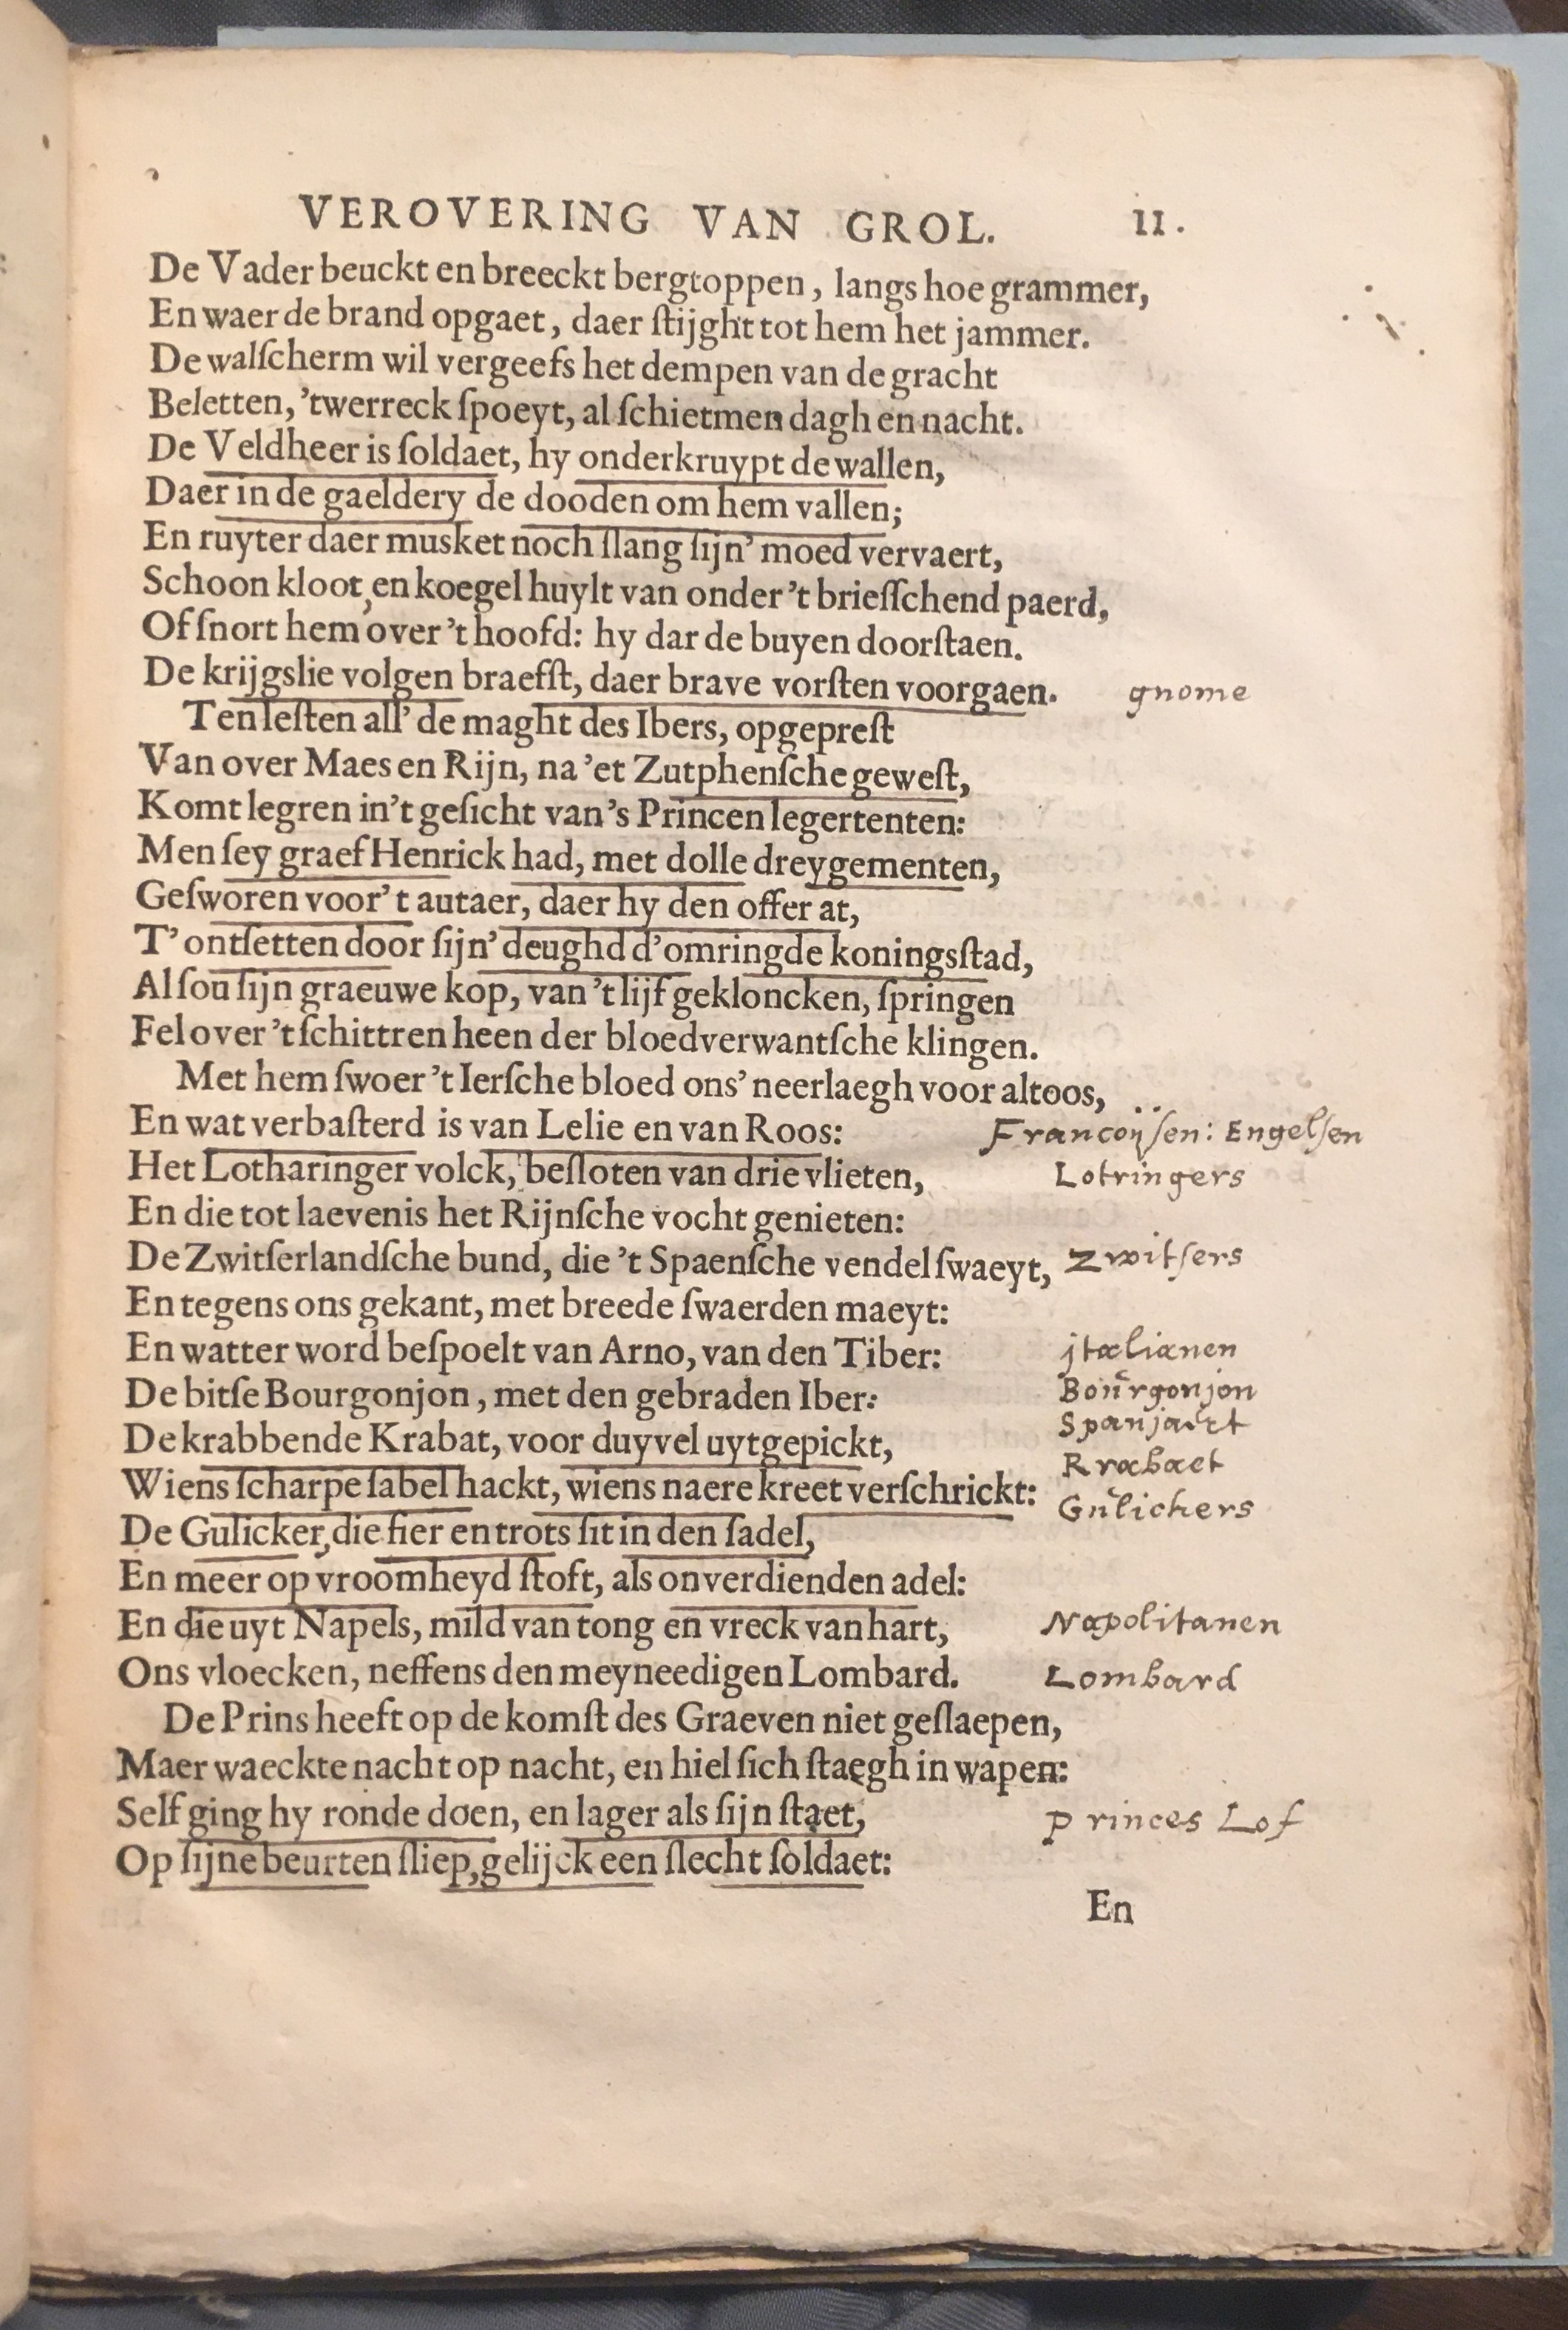 VEROVERING VAN GROL. 11.
De Vader beuckt en breeckt bergtoppen, langs hoe grammer,
En waer de brand opgaet, daer ſtijght tot hem het jammer.
De walſcherm wil vergeefs het dempen van de gracht
Beletten, 'twerreck ſpoeyt, al ſchietmen dagh en nacht.
De Veldheer is ſoldaet, hy onderkruypt de wallen,
Daer in de gaeldery de dooden om hem vallen;
En ruyter daer musket noch ſlang ſijn' moed vervaert,
Schoon kloot, en koegel huylt van onder 't brieſſchend paerd,
Of ſnort hem over 't hoofd: hy dar de buyen doorſtaen.
De krijgslie volgen braefſt, daer brave vorſten voorgaen. gnome
Ten leſten all' de maght des Ibers, opgepreſt
Van over Maes en Rijn, na 'et Zutphenſche geweſt,
Komt legren in't geſicht van 's Princen legertenten:
Men ſey graef Henrick had, met dolle dreygementen,
Geſworen voor 't autaer, daer hy den offer at,
T' ontſetten door ſijn' deughd d'omringde koningsſtad,
Al ſou ſijn graeuwe kop, van 't lijf gekloncken, ſpringen
Fel over 't ſchittren heen der bloedverwantſche klingen.
Met hem ſwoer 't Ierſche bloed ons' neerlaegh voor altoos,
En wat verbaſterd is van Lelie en van Roos: Francoyſen: Engelſen
Het Lotharinger volck, beſloten van drie vlieten, Lotringers
En die tot laevenis het Rijnſche vocht genieten:
De Zwitſerlandſche bund, die 't Spaenſche vendel ſwaeyt, Zwitſers
En tegens ons gekant, met breede ſwaerden maeyt:
En watter word beſpoelt van Arno, van den Tiber: jtalianen
De bitſe Bourgonjon, met den gebraden Iber: Bourgonjon
Spanjaert
De krabbende Krabat, voor duyvel uytgepickt, Krabaet
Wiens ſcharpe ſabel hackt, wiens naere kreet verſchrickt:
De Gulicker, die fier en trots ſit in den ſadel, Gulickers
En meer op vroomheyd ſtoft, als onverdienden adel:
En die uyt Napels, mild van tong en vreck van hart, Napolitanen
Ons vloecken, neffens den meyneedigen Lombard. Lombard
De Prins heeft op de komſt des Graeven niet geſlaepen,
Maer waeckte nacht op nacht, en hiel ſich ſtaegh in wapen:
Self ging hy ronde doen, en lager als ſijn ſtaet, princes Lof
Op ſijne beurten ſliep, gelijck een ſlecht ſoldaet:
En